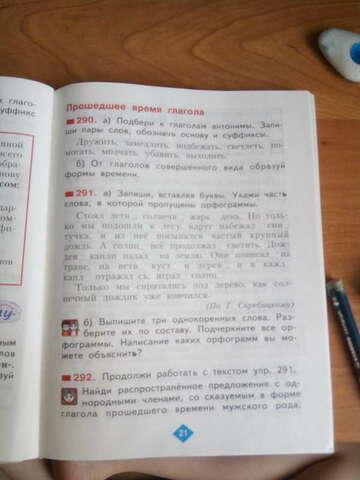 Прошедшее время глагола
290. а) Подбери к глаголам антонимы. Запи-
ши пары слов, обозначь основу и суффиксы.
Дружить, замедлить, подбежать, светлеть, по-
могать, молчать, убавить, выходить.
б) От глаголов совершенного вида образуй
формы времени.
291. а) Запиши, вставляя буквы. Укажи часть
слова, в которой пропущены орфограммы.
Стоял летн
солнечн
жарк
день. Но толь-
ко мы подошли к лесу, вдруг набежал
син
тучка, и из неё посыпался частый крупный
дождь. А солнц
всё продолжал
светить. Дож-
дев
капли падал
на землю. Они повисал
на
траве, на ветв
куст
и дерев
и в кажд
капл
отражал сь, играл
солнц
Только мы спрятались под дерево, как сол-
нечный дождик уже кончился.
(По Г. Скребицкому)
б) Выпишите три однокоренных слова. Раз-
берите их по составу. Подчеркните все ор-
фограммы. Написание каких орфограмм вы мо-
жете объяснить?
292. Продолжи работать с текстом упр. 291.
Найди распространённое предложение с од-
нородными членами, со сказуемым в форме
глагола прошедшего времени мужского рода.
21